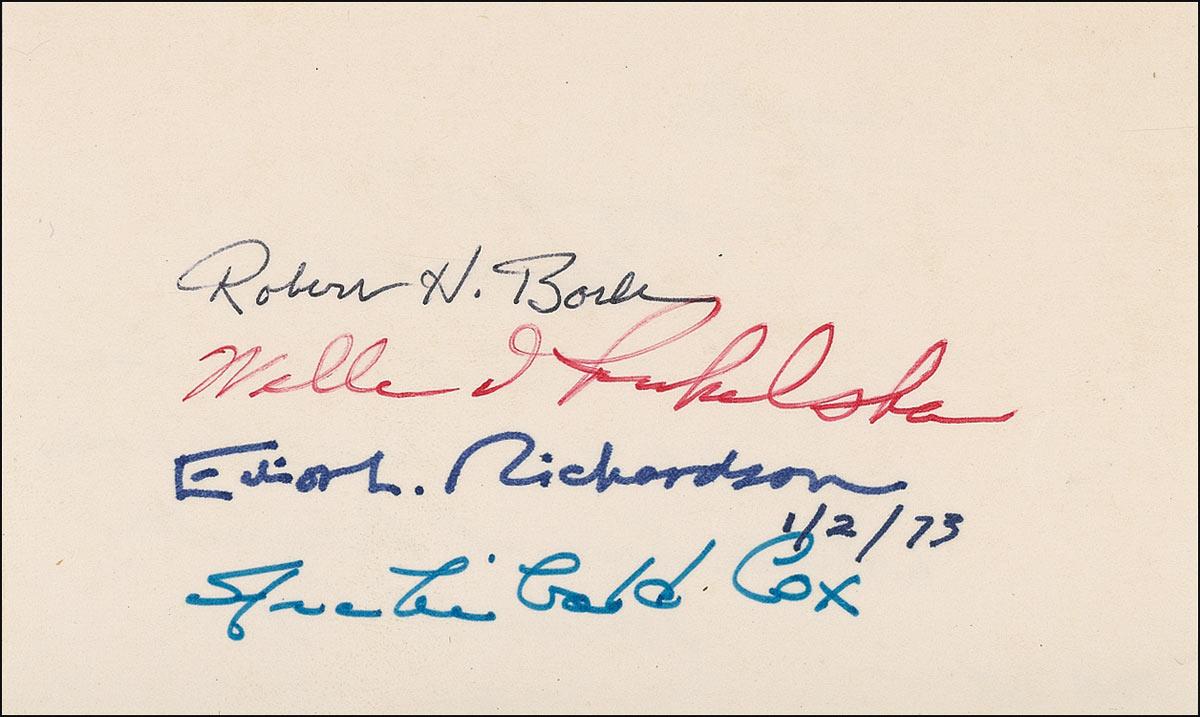 Robert H. Bork
William D Ruckelshaus
Elliot L. Richardson
1/2/73
Archibald Cox